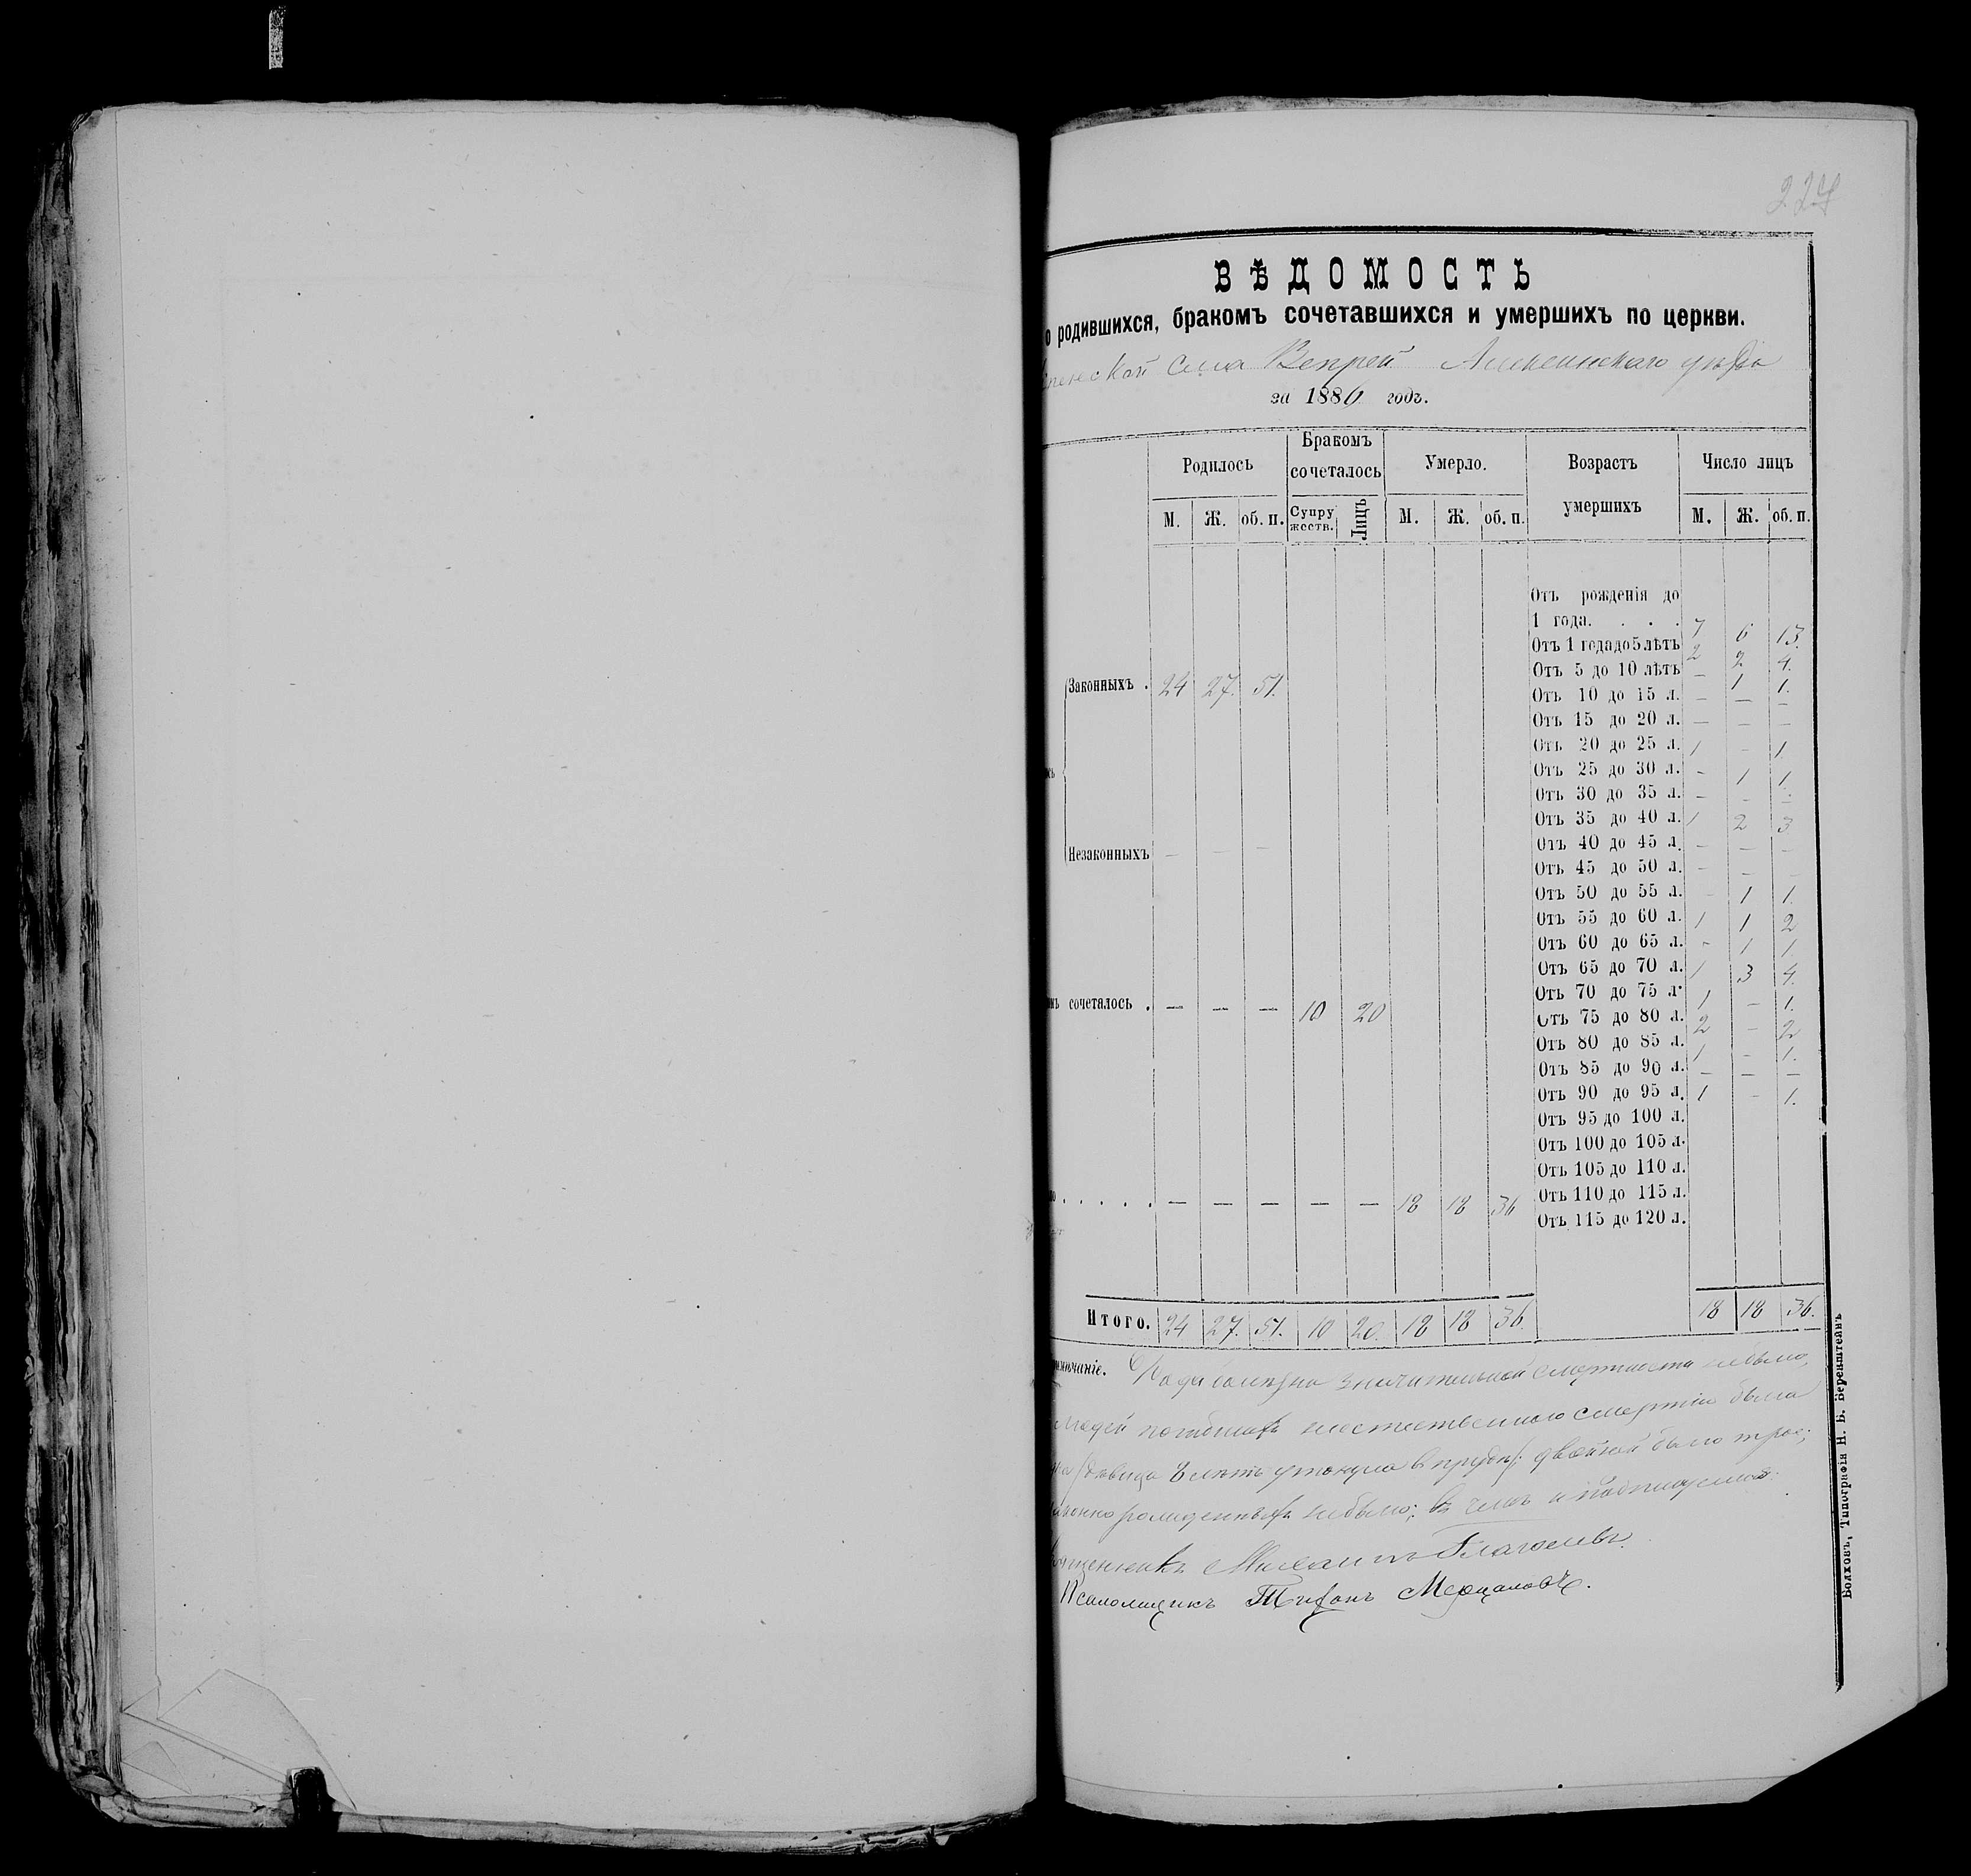 227
ВѢДОМОСТЬ
о родившихся, бракомъ сочетавшихся и умершихъ по церкви.
села Вепрей уѣзда
за 1886 годъ.
Родилось Бракомъ сочеталось Умерло. Возрастъ умершихъ Число лицъ
М. Ж. об. п. Супружеств. Лицъ М. Ж. об. п. М. Ж. об. п.
Законныхъ . 24 27. 51.
Незаконныхъ — — —
сочеталось . — — — 10 20
. . . . . — — — — — 18 18 36
Отъ рожденія до
1 года. . . . 7 6 13.
Отъ 1 года до 5 лѣтъ 2 2 4.
Отъ 5 до 10 лѣтъ — 1 1.
Отъ 10 до 15 л. — — —
Отъ 15 до 20 л. — — —
Отъ 20 до 25 л. 1 — 1.
Отъ 25 до 30 л. — 1 1.
Отъ 30 до 35 л. — — —
Отъ 35 до 40 л. 1 2 3
Отъ 40 до 45 л. — — —
Отъ 45 до 50 л. — — —
Отъ 50 до 55 л. — 1 1.
Отъ 55 до 60 л. 1 1 2
Отъ 60 до 65 л. — 1 1
Отъ 65 до 70 л. 1 3 4.
Отъ 70 до 75 л. 1 — 1.
Отъ 75 до 80 л. 2 — 2
Отъ 80 до 85 л. 1 — 1.
Отъ 85 до 90 л. — — —
Отъ 90 до 95 л. 1 — 1.
Отъ 95 до 100 л.
Отъ 100 до 105 л.
Отъ 105 до 110 л.
Отъ 110 до 115 л.
Отъ 115 до 120 л.
Итого. 24 27. 51. 10 20. 18 18 36. 18 18 36.
значительной смертности небыло,
людей погибшихъ неестественною смертію была
дѣвица 8 лѣтъ утонула въ прудѣ; двойней было трое;
небыло; въ чемъ и подписуемся.
Михаилъ Глаголевъ.
Псаломщикъ Тихонъ Мерцаловъ.
Волховъ, Типографія Н. Б. Беренштейнъ